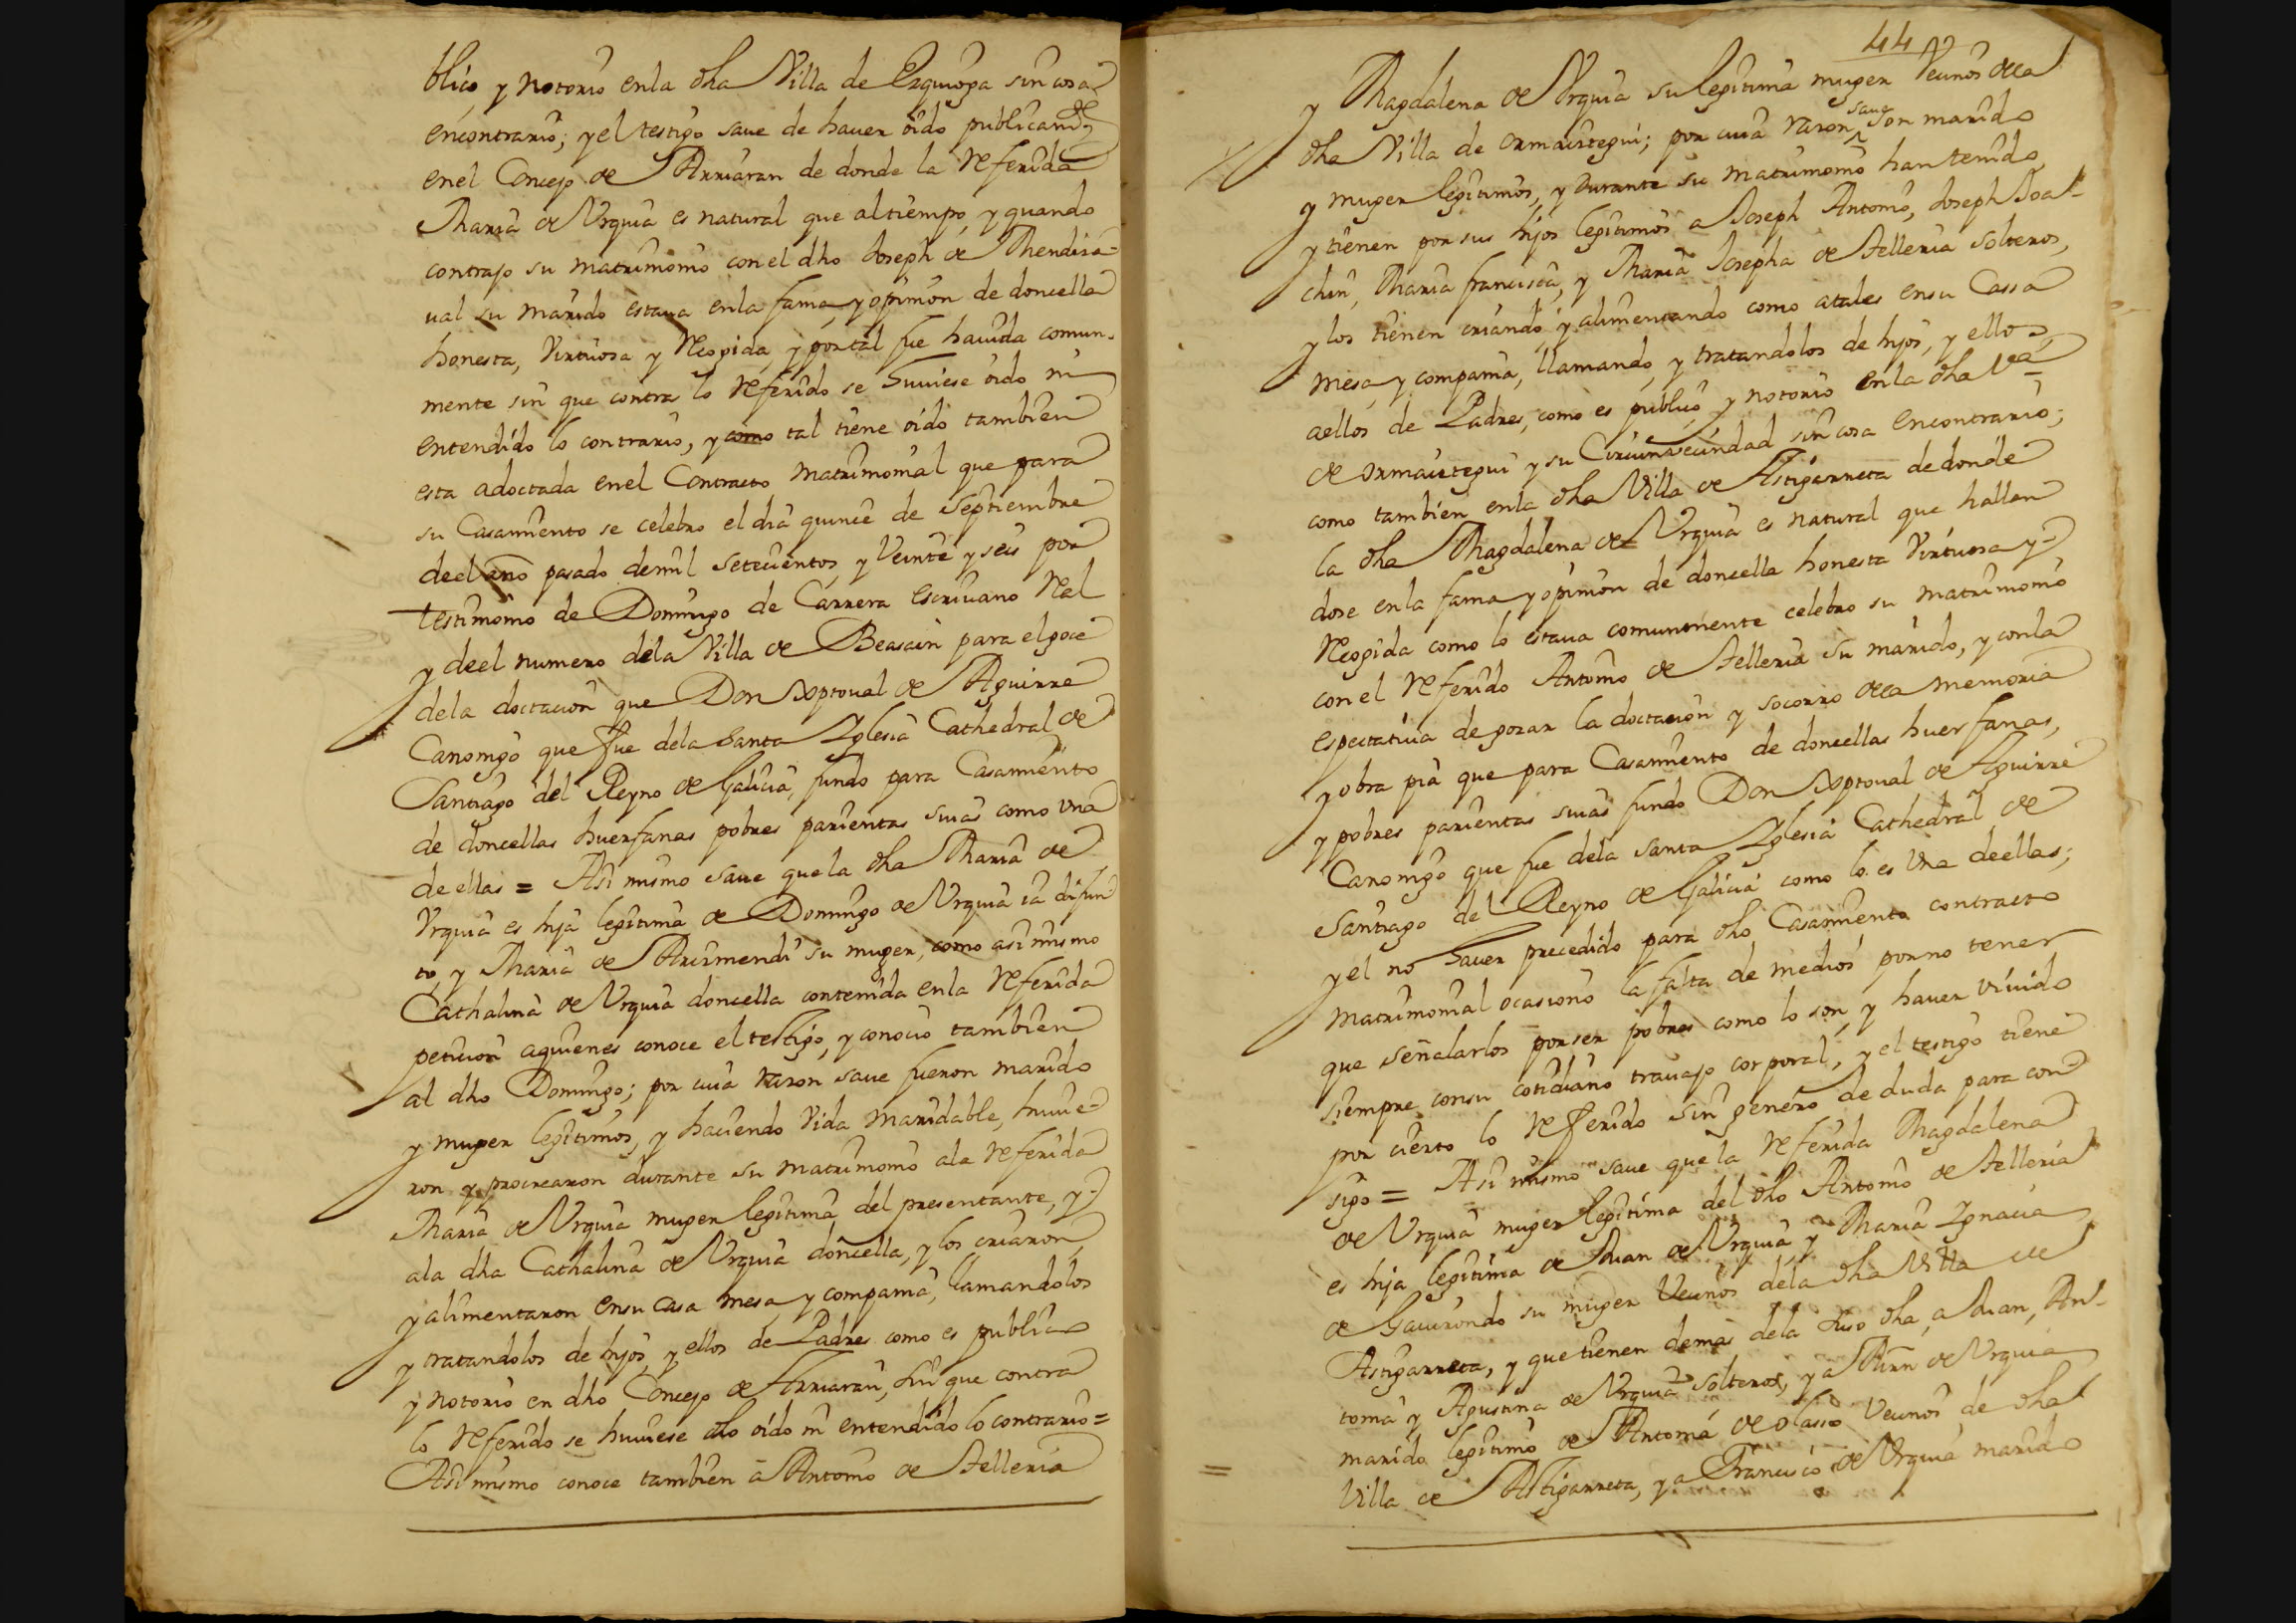 blico, y notorio enla dha Villa de Ezquioga sin cosa
encontrario; y el testigo save de haver oido publicam.te
enel Concejo de Arriaran de donde la referida
Maria de Urquia es natural que altiempo, y quando
contrajo su matrimonio conel dho Joseph de Mendiza-
val su marido estava enla fama, y opinion de doncella
honesta, Virtuosa y Recogida, y por tal fue havida comun-
mente sin que contra lo referido se huviese oido ni
entendido lo contrario, y como tal tiene oido tambien
esta adoctada enel Contracto matrimonial que para
su Casamiento se celebro el dia quince de Septiembre
deel año pasado demil setecientos, y Veinte y seis por
testimonio de Domingo de Carrera escrivano Real
y deel numero dela Villa de Beasain para el goce
dela doctacion que Don Xptoval de Aguirre
Canonigo que fue dela Santa Iglesia Cathedral de
Santiago del Reyno de Galicia, fundo para Casamiento
de doncellas huerfanas pobres parientas suias como una
de ellas = Asi mismo save que la dha Maria de
Urquia es hija legitima de Domingo de Urquia ia difun-
to, y Maria de Arismendi su muger, como asimismo
Cathalina de Urquia doncella contenida enla referida
peticion aquienes conoce el testigo, y conocio tambien
al dho Domingo; por cuia razon save fueron marido
y muger legitimos, y haciendo Vida Maridable, huvie-
ron y procrearon durante su matrimonio ala referida
Maria de Urquia muger legitima del presentante, y
ala dha Cathalina de Urquia doncella, y los criaron,
y alimentaron ensu casa mesa y compania, llamandolos
y tratandolos de hijos, y ellos de Padres como es publico
y notorio en dho Concejo de Arriaran, sin que contra
lo referido se huviese dho oido ni entendido lo contrario =
Asi mismo conoce tambien a Antonio de Telleria
44
y Magdalena de Urquia su legitima muger Vecinos dela
dha Villa de ormaiztegui; por cuia razon save son marido
y muger legitimos, y durante su matrimonio han tenido,
y tienen por sus hijos legitimos a Joseph Antonio, Joseph Joa-
chin, Maria francisca, y Maria Josepha de Telleria solteros,
y los tienen criando, y alimentando como atales ensu Cassa
mesa, y compania, llamando, y tratandolos de hijos, y ellos,
aellos de Padres, como es publico, y notorio enla dha V.a
de ormaiztegui y su Circunvecindad sin cosa encontrario;
como tambien enla dha Villa de Astigarreta de donde
la dha Magdalena de Urquia es natural que hallan
dose enla fama y opinion de doncella honesta Virtuosa y
Recogida como lo estava comunmente celebro su matrimonio
conel referido Antonio de Telleria su marido, y conla
espectativa de gozar la doctacion y socorro dela memoria
y obra pia que para Casamiento de doncellas huerfanas,
y pobres parientas suias fundo Don Xptoval de Aguirre
Canonigo que fue dela Santa Iglesia Cathedral de
Santiago del Reyno de Galicia como lo es Una deellas;
y el no haver precedido para dho Casamiento contracto
matrimonial ocasiono la falta de medios por no tener
que señalarlos por ser pobres como lo son, y haver vivido
siempre consu cotidiano travajo corporal, y el testigo tiene
por cierto lo referido sin genero de duda para con
sigo = Asi mismo save que la referida Magdalena
de Urquia muger legitima del dho Antonio de Telleria
es hija legitima de Juan de Urquia, y Maria Ignacia
de Gavirondo su muger Vecinos dela dha Villa de
Astigarreta, y que tienen demas dela suso dha, a Juan, An-
tonia y Agustina de Urquia solteros, y a Min de Urquia
marido legitimo de Antonia de olasso Vecinos de dha
Villa de Astigarreta, y a Francisco de Urquia marido